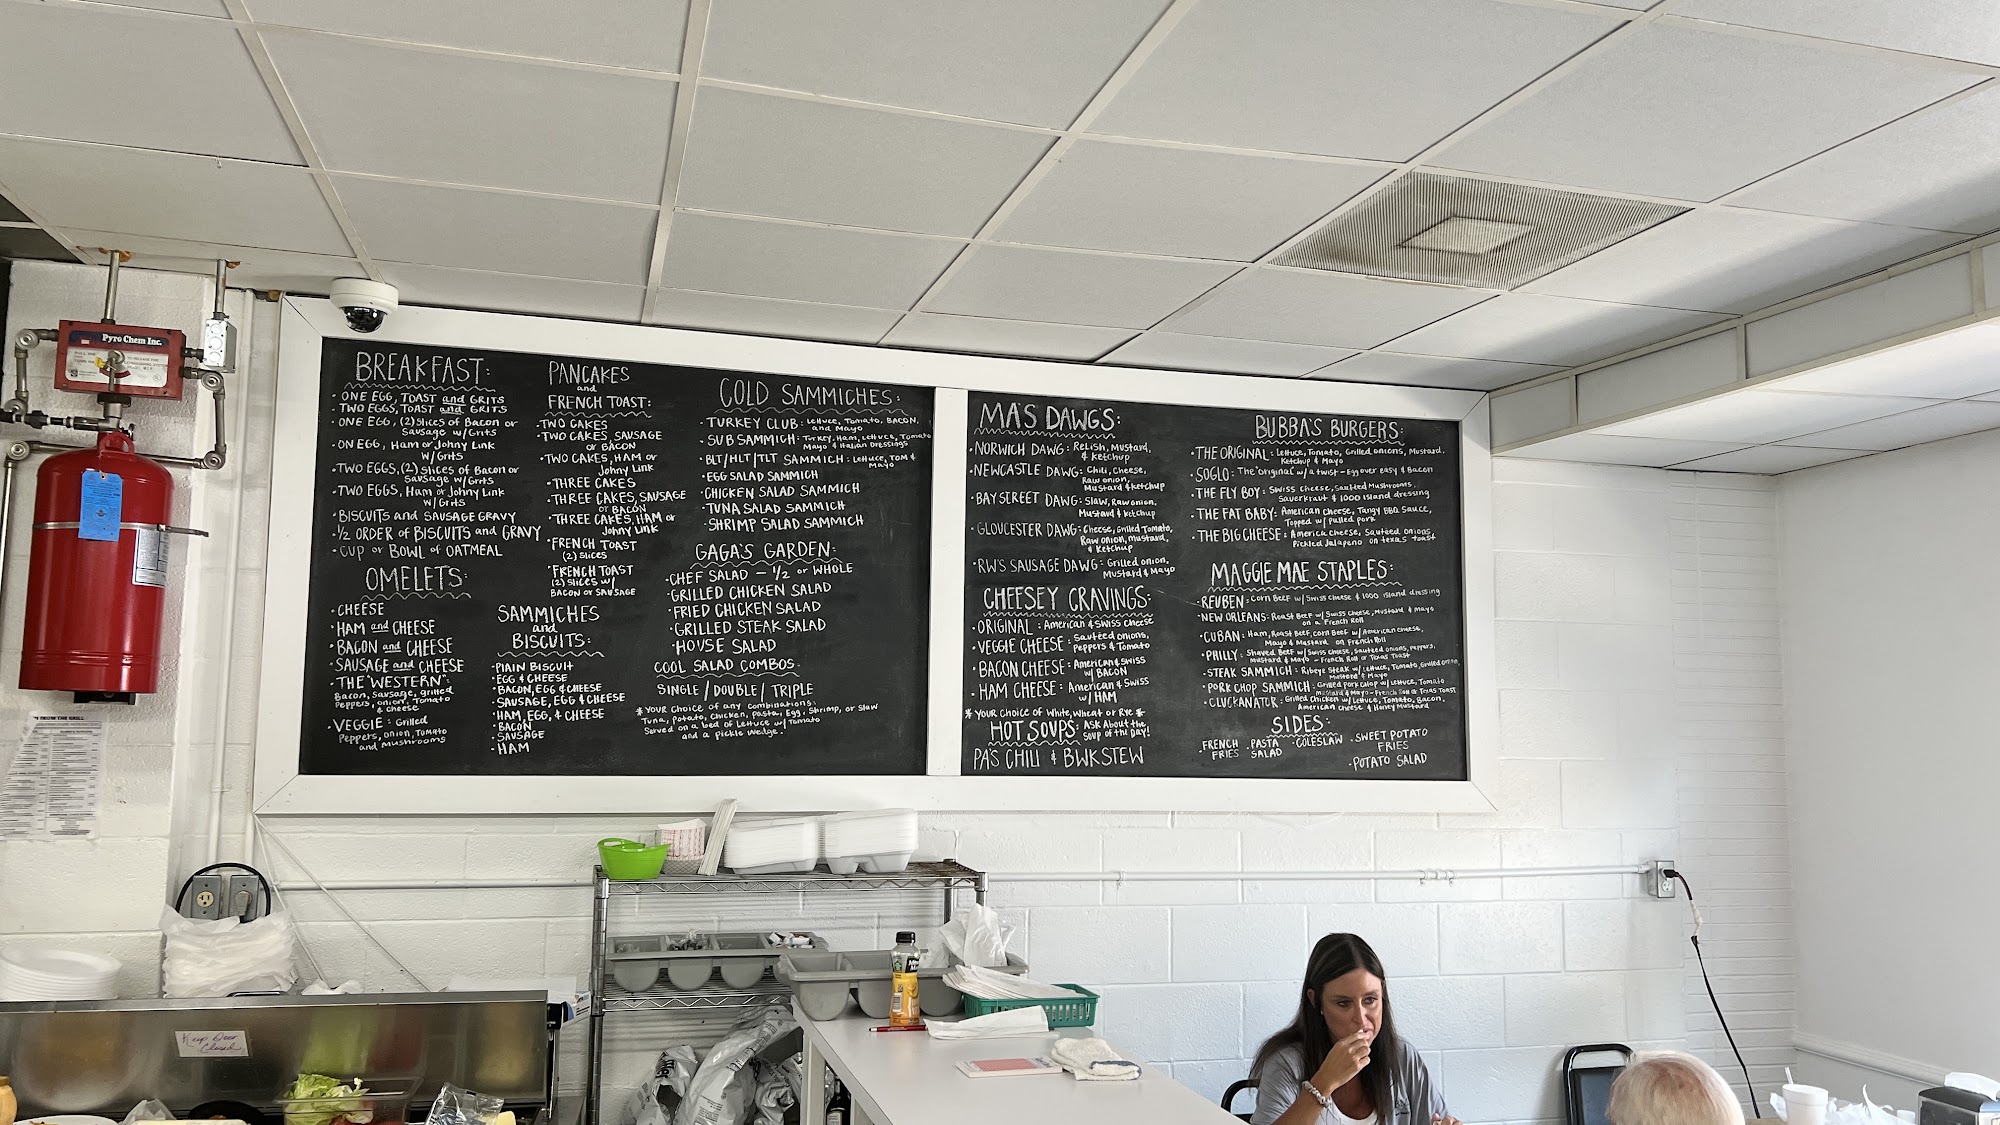 Pyro Chem Inc.
BREAKFAST:
· ONE EGG, TOAST and GRITS
· TWO EGGS, TOAST and GRITS
· ONE EGG, (2) Slices of Bacon or
Sausage w/Grits
· ON EGG, Ham or Johny Link
W/Grits
· TWO EGGS, (2) Slices of Bacon or
Sausage w/Grits
· TWO EGGS, Ham or Johny Link
W/Grits
· BISCUITS and SAUSAGE GRAVY
· 1/2 ORDER of BISCUITS and GRAVY
· CUP or BOWL of OATMEAL
OMELETS:
· CHEESE
· HAM and CHEESE
· BACON and CHEESE
· SAUSAGE and CHEESE
· THE "WESTERN":
Bacon, Sausage, grilled
Peppers, onion, Tomato
& cheese
· VEGGIE: Grilled
Peppers, onion, Tomato
and Mushrooms
PANCAKES
and
FRENCH TOAST:
· TWO CAKES
· TWO CAKES, SAUSAGE
or BACON
· TWO CAKES, HAM or
Johny Link
· THREE CAKES
· THREE CAKES, SAUSAGE
or BACON
· THREE CAKES, HAM or
Johny Link
· FRENCH TOAST
(2) Slices
· FRENCH TOAST
(2) Slices w/
BACON or SAUSAGE
SAMMICHES
and
BISCUITS:
· PlAIN BISCUIT
· EGG & CHEESE
· BACON, EGG & CHEESE
· SAUSAGE, EGG & CHEESE
· HAM, EGG, & CHEESE
· BACON
· SAUSAGE
· HAM
COLD SAMMICHES:
· TURKEY CLUB: Lettuce, Tomato, BACON,
and Mayo
· SUB SAMMICH: Turkey, Ham, Lettuce, Tomato
Mayo & Italian Dressings
· BLT/HLT/TLT SAMMICH: Lettuce, TOM &
Mayo
· EGG SALAD SAMMICH
· CHICKEN SALAD SAMMICH
· TUNA SALAD SAMMICH
· SHRIMP SALAD SAMMICH
GAGA'S GARDEN:
· CHEF SALAD — 1/2 or WHOLE
· GRILLED CHICKEN SALAD
· FRIED CHICKEN SALAD
· GRILLED STEAK SALAD
· HOUSE SALAD
COOL SALAD COMBOS:
SINGLE / DOUBLE / TRIPLE
* YOUR Choice of any combinations:
Tuna, Potato, Chicken, Pasta, Egg, Shrimp, or Slaw
Served on a bed of Lettuce w/ Tomato
and a pickle wedge!
MA'S DAWG'S:
· NORWICH DAWG: Relish, Mustard,
& Ketchup
· NEWCASTLE DAWG: Chili, Cheese,
Raw onion,
Mustard & ketchup
· BAY STREET DAWG: Slaw, Raw onion,
Mustard & ketchup
· GLOUCESTER DAWG: Cheese, Grilled Tomato,
Raw onion, mustard,
& Ketchup
· RW'S SAUSAGE DAWG: Grilled onion,
Mustard & Mayo
CHEESEY CRAVINGS:
· ORIGINAL: American & Swiss Cheese
· VEGGIE CHEESE: Sautéed onions,
Peppers & Tomato
· BACON CHEESE: American & Swiss
w/ BACON
· HAM CHEESE: American & Swiss
w/ HAM
* YOUR Choice of White, Wheat or Rye *
HOT SOUPS: ASK About the
Soup of the DAY!
PA'S CHILI & BWK STEW
BUBBA'S BURGERS:
· THE ORIGINAL: Lettuce, Tomato, Grilled onions, Mustard,
Ketchup & Mayo
· SOGLO: The "original" w/ a twist - Egg over easy & Bacon
· THE FLY BOY: Swiss Cheese, Sautéed Mushrooms,
Sauerkraut & 1000 Island dressing
· THE FAT BABY: American Cheese, Tangy BBQ Sauce,
Topped w/ pulled pork
· THE BIG CHEESE: America Cheese, Sautéed onions,
Pickled Jalapeno on texas toast
MAGGIE MAE STAPLES:
· REUBEN: Corn Beef w/ Swiss Cheese & 1000 island dressing
· NEW ORLEANS: Roast Beef w/ Swiss Cheese, Mustard & Mayo
on a French Roll
· CUBAN: Ham, Roast Beef, Corn Beef w/ American cheese,
Mayo & Mustard on French Roll
· PHILLY: Shaved Beef w/ Swiss Cheese, Sautéed Onions, Peppers,
Mustard & Mayo - French Roll or Texas Toast
· STEAK SAMMICH: Ribeye Steak w/ Lettuce, Tomato, Grilled onion,
Mustard & Mayo
· PORK CHOP SAMMICH: Grilled Pork Chop w/ Lettuce, Tomato
Mustard & Mayo - French Roll or Texas Toast
· CLUCKANATOR: Grilled chicken w/ Lettuce, Tomato, Bacon,
American cheese & Honey Mustard
SIDES:
· FRENCH FRIES
· PASTA SALAD
· COLESLAW
· SWEET POTATO FRIES
· POTATO SALAD
Keep Door
Closed